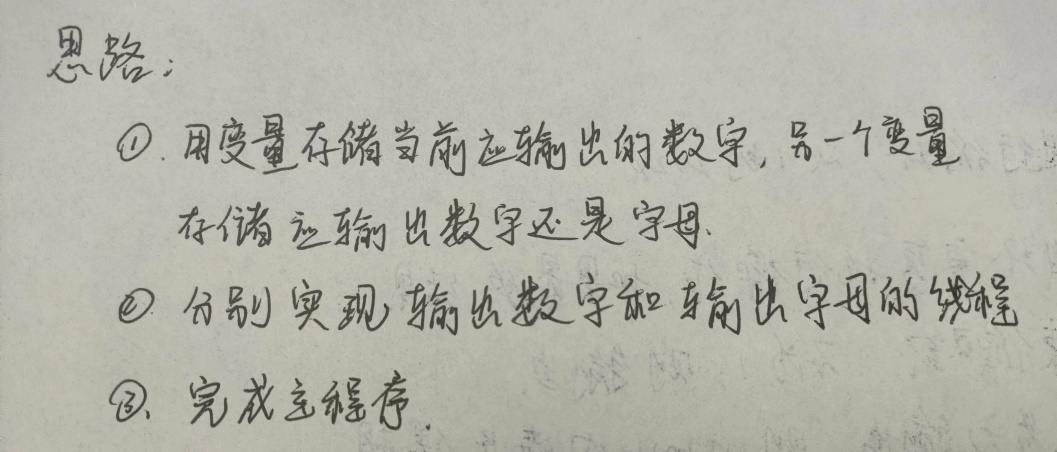 思路:
①. 用变量存储当前应输出的数字, 另一个变量
存储应输出数字还是字母.
② 分别实现输出数字和输出字母的线程
③、完成主程序.